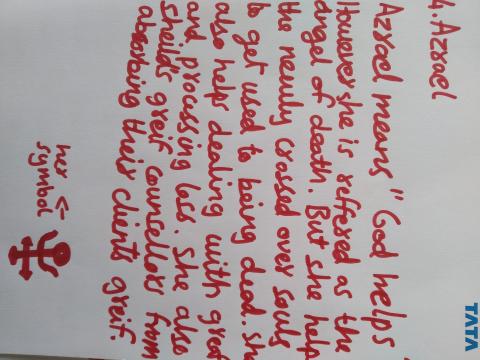 TATA
4. Azrael
Azrael means "God helps
However she is reffered as the
angel of death. But she help
the newly crossed over souls
to get used to being dead. She
also helps dealing with greif
and processing loss. She also
sheilds greif counsellors from
absorbing their clients greif.
her <-
symbol